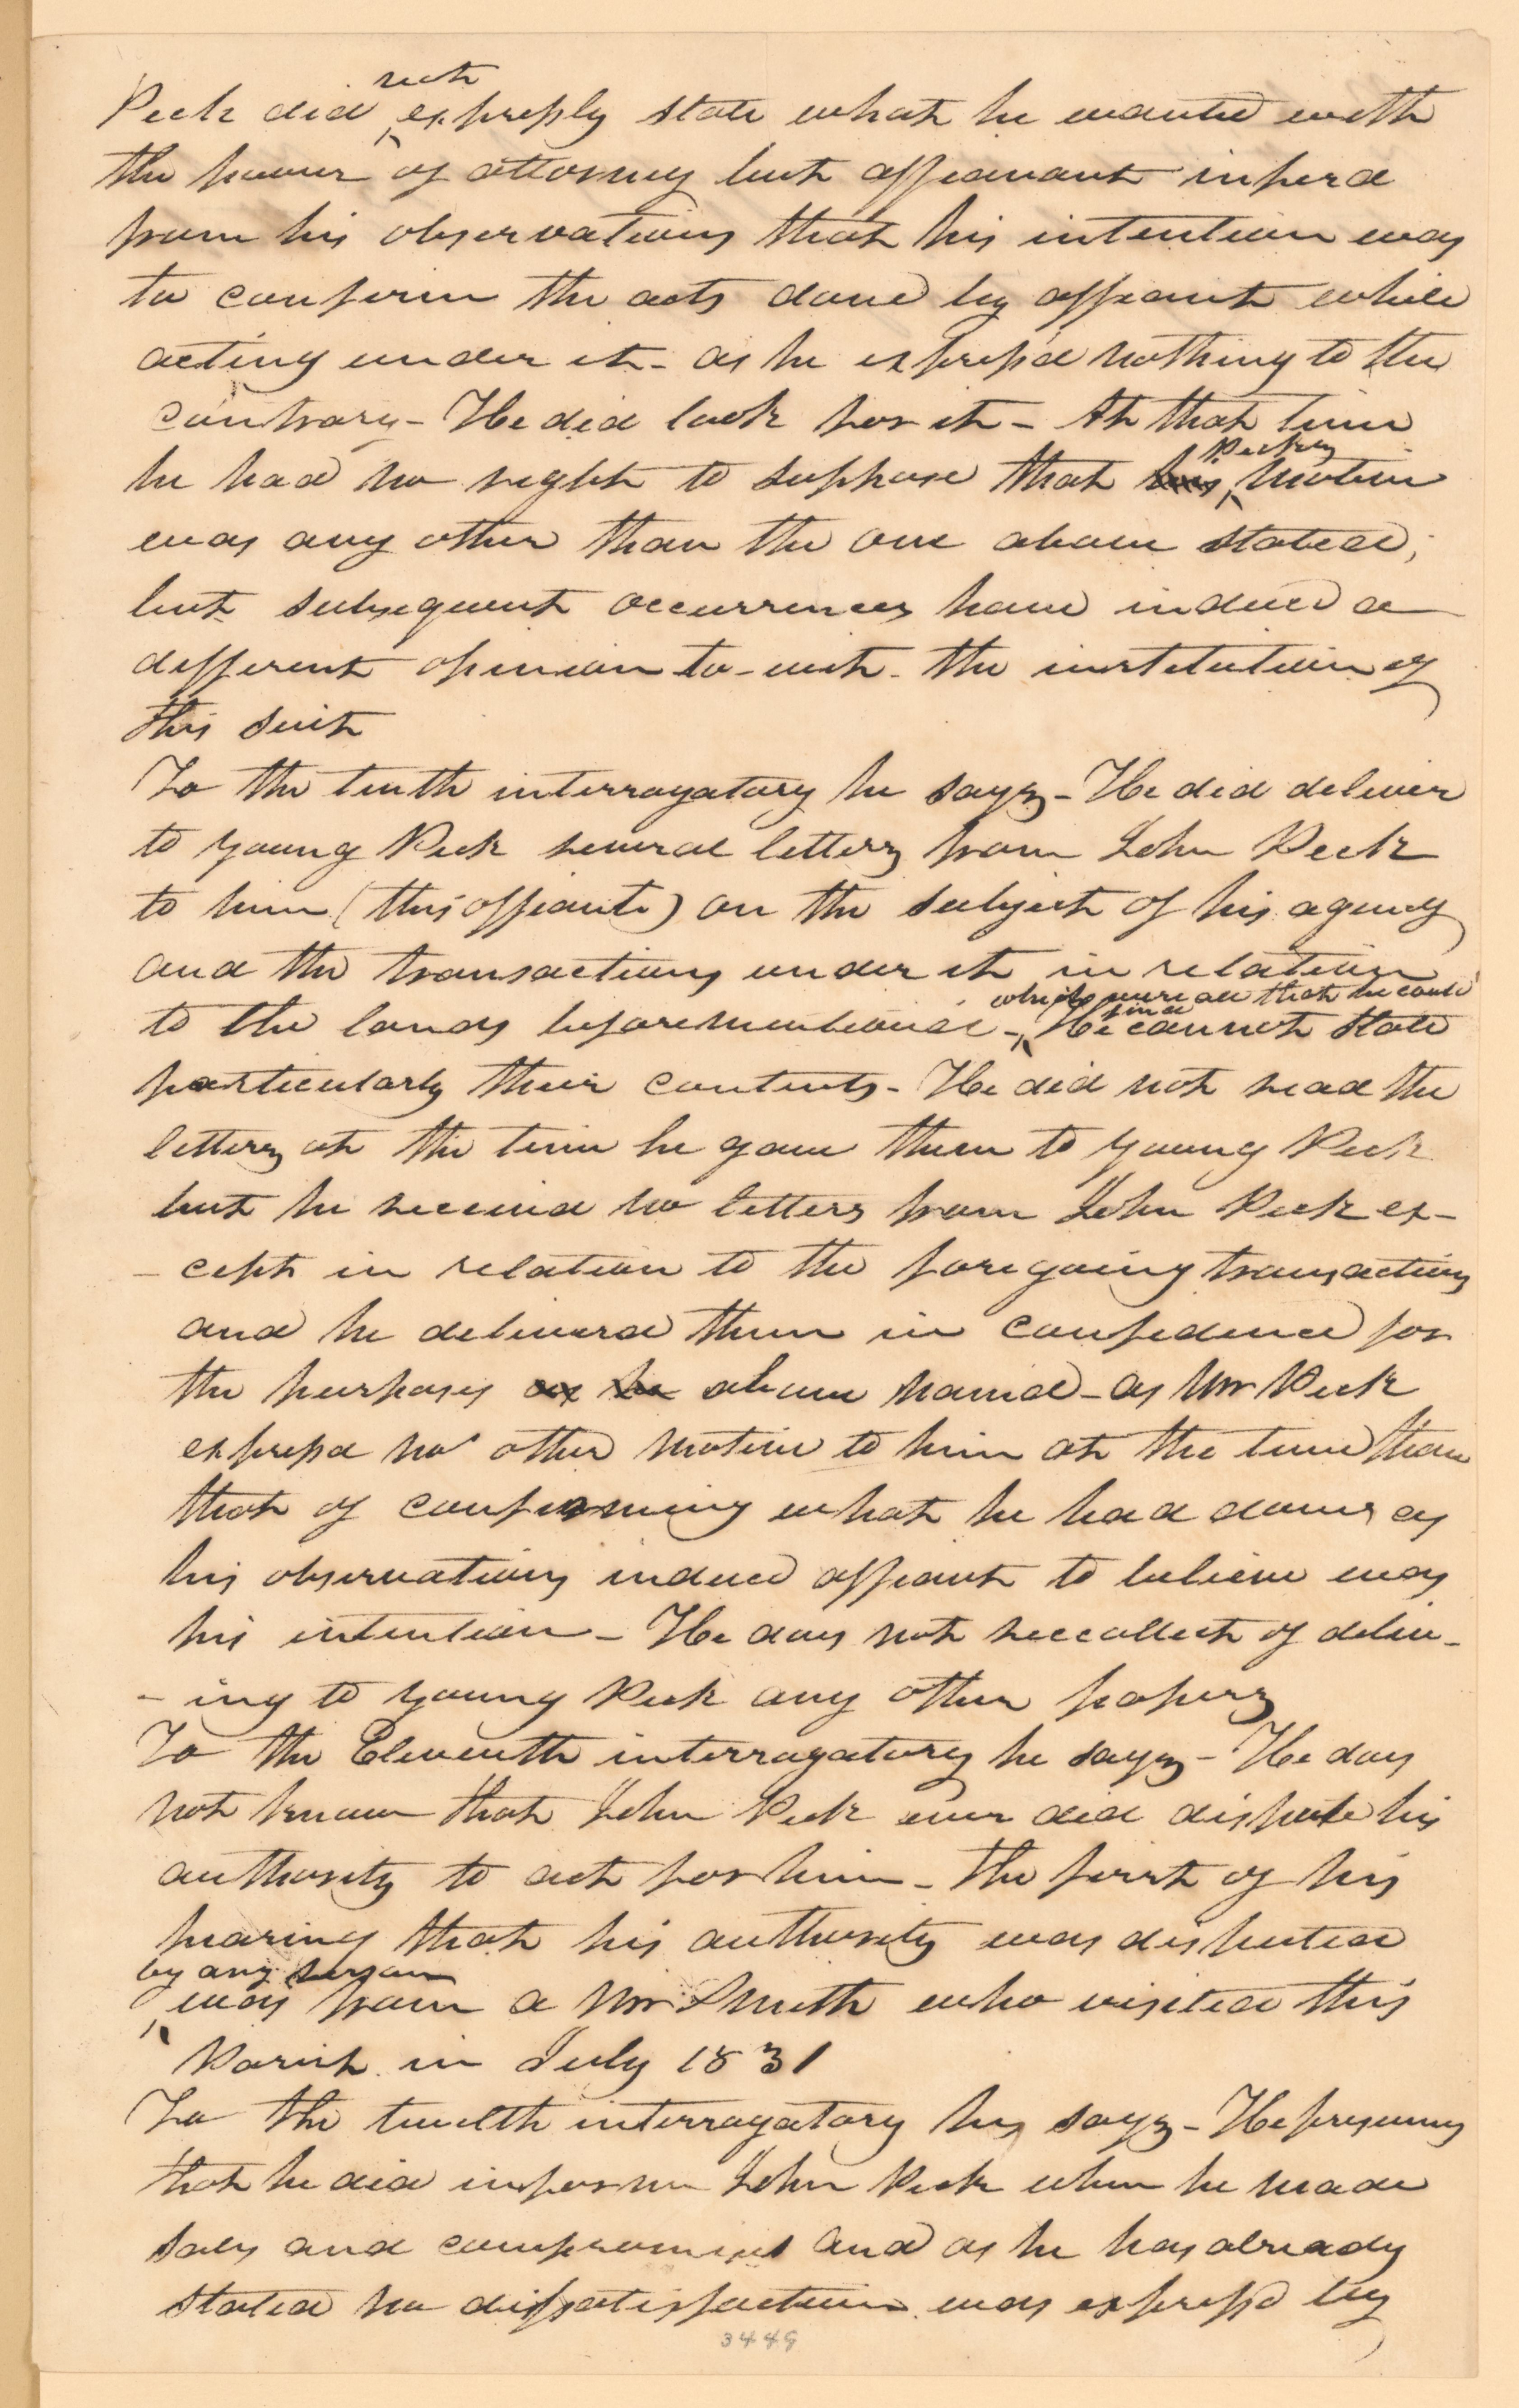 Peck did not expressly state what he wanted with
the power of attorney but affeavant inferd
from his observations that his intention was
to confirm the acts done by affeant while
acting under it - as he express'd nothing to the
contrary - He did look for it - At that time
he had no right to suppose that his Pecks motive
was any other than the one above stated;
but subsequent occurrences have induced a
different opinion to-wit - the institution of
this suit
To the tenth interrogatory he says - He did deliver
to young Peck several letters from John Peck
to him (this affeant) on the subject of his agency
and the transactions under it in relation
to the lands beforementioned - which were all that he could find He cannot state
particularly their contents - He did not read the
letters at the time he gave them to young Peck
but he receivd no letters from John Peck ex-
- cept in relation to the foregoing transactions
and he deliverd them in confidence for
the purposes as he above named - as Mr Peck
expressd no other motive to him at the time than
that of confirming what he had done as
his observations induced affeant to believe was
his intention - He does not reccollect of deliv-
- ing to young Peck any other papers
To the Eleventh interrogatory he says - He does
not know that John Peck ever did dispute his
authority to act for him - The first of his
hearing that his authority was disputed
by any person was from a Mr Smith who visited this
Parish in July 1831
To the twelth interrogatory he says - He presumes
that he did inform John Peck when he made
sales and compromises and as he has already
stated no dissatisfaction was express'd by
3449